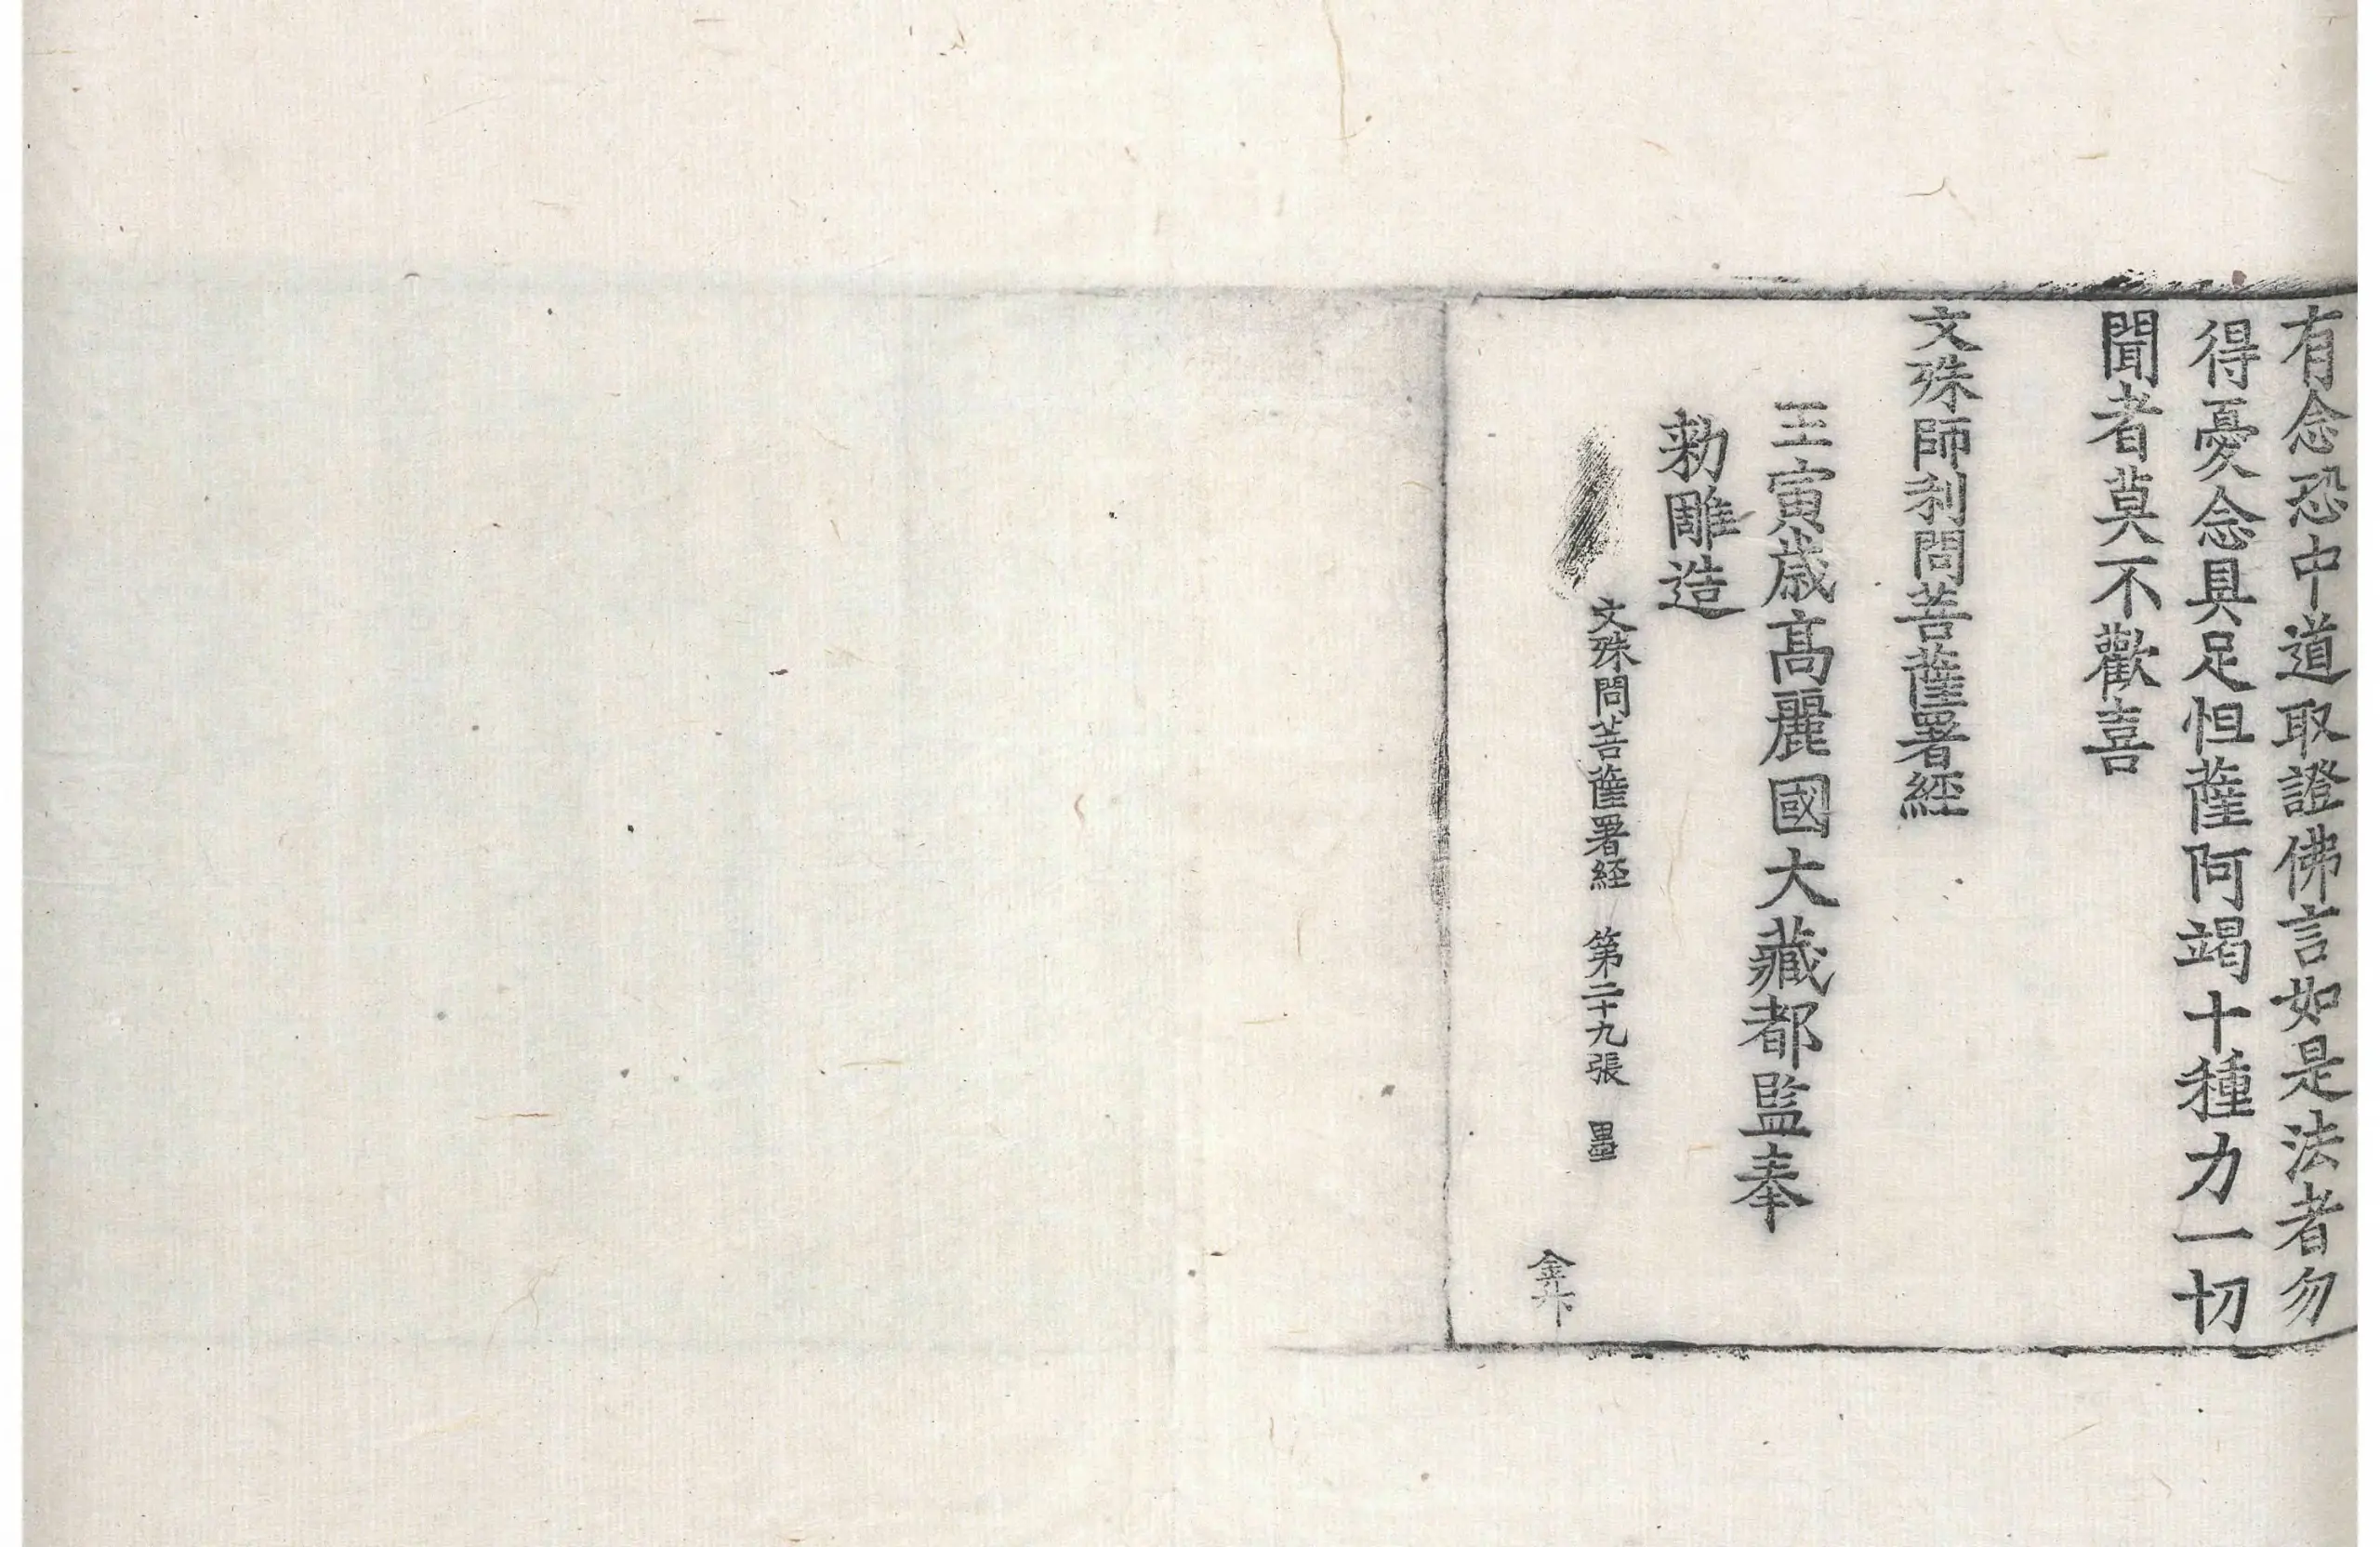 有念恐中道取證佛言如是法者勿
得憂念具足怛薩阿竭十種力一切
聞者莫不歡喜
文殊師利問菩薩署經
壬寅歲高麗國大藏都監奉
勅雕造
文殊問菩薩署經 第二十九張 墨